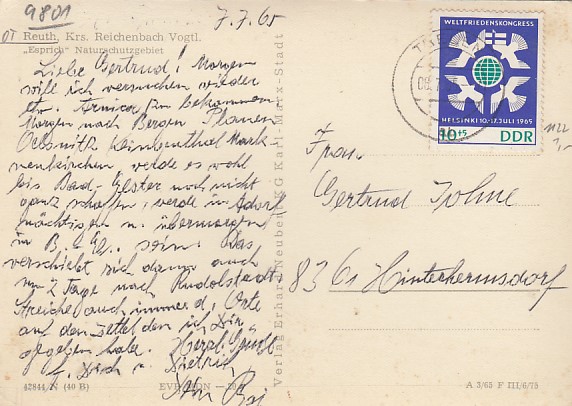 9801
7.7.65
OT Reuth, Krs. Reichenbach Vogtl.
„Esprich" Naturschutzgebiet
Liebe Gertrud! Morgen
will ich versuchen wieder
etw. Arnica zu bekommen
Morgen nach Bergen Plauen
Oelsnitz Mark-
neukirchen werde es wohl
bis Bad-Elster noch nicht
ganz schaffen, werde in Adorf
nächtigen u. übermorgen
in B. sein. Das
verschiebt sich dann auch
um 2 Tage nach Rudolstadt.
Streiche auch immer d. Orte
auf dem Zettel den ich Dir
gegeben habe. Herzl. Grüße
T. u. Dietrich
42844 N (40 B)
Verlag Erhard Neubert KG Karl-Marx-Stadt
WELTFRIEDENSKONGRESS
HELSINKI 10.-17. JULI 1965
10+5 DDR
1122
1,-
Frau
Gertrud
8361 Hinterhermsdorf
A 3/65 F III/6/75